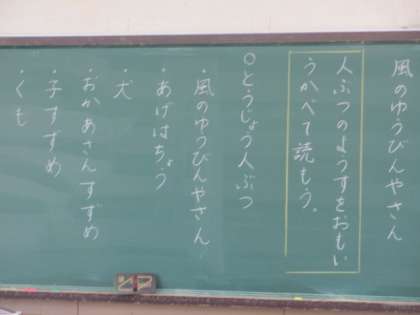 風のゆうびんやさん
人ぶつのようすをおもい
うかべて読もう。
○とうじょう人ぶつ
・風のゆうびんやさん
・あげはちょう
・犬
・おかあさんすずめ
・子すずめ
・くも